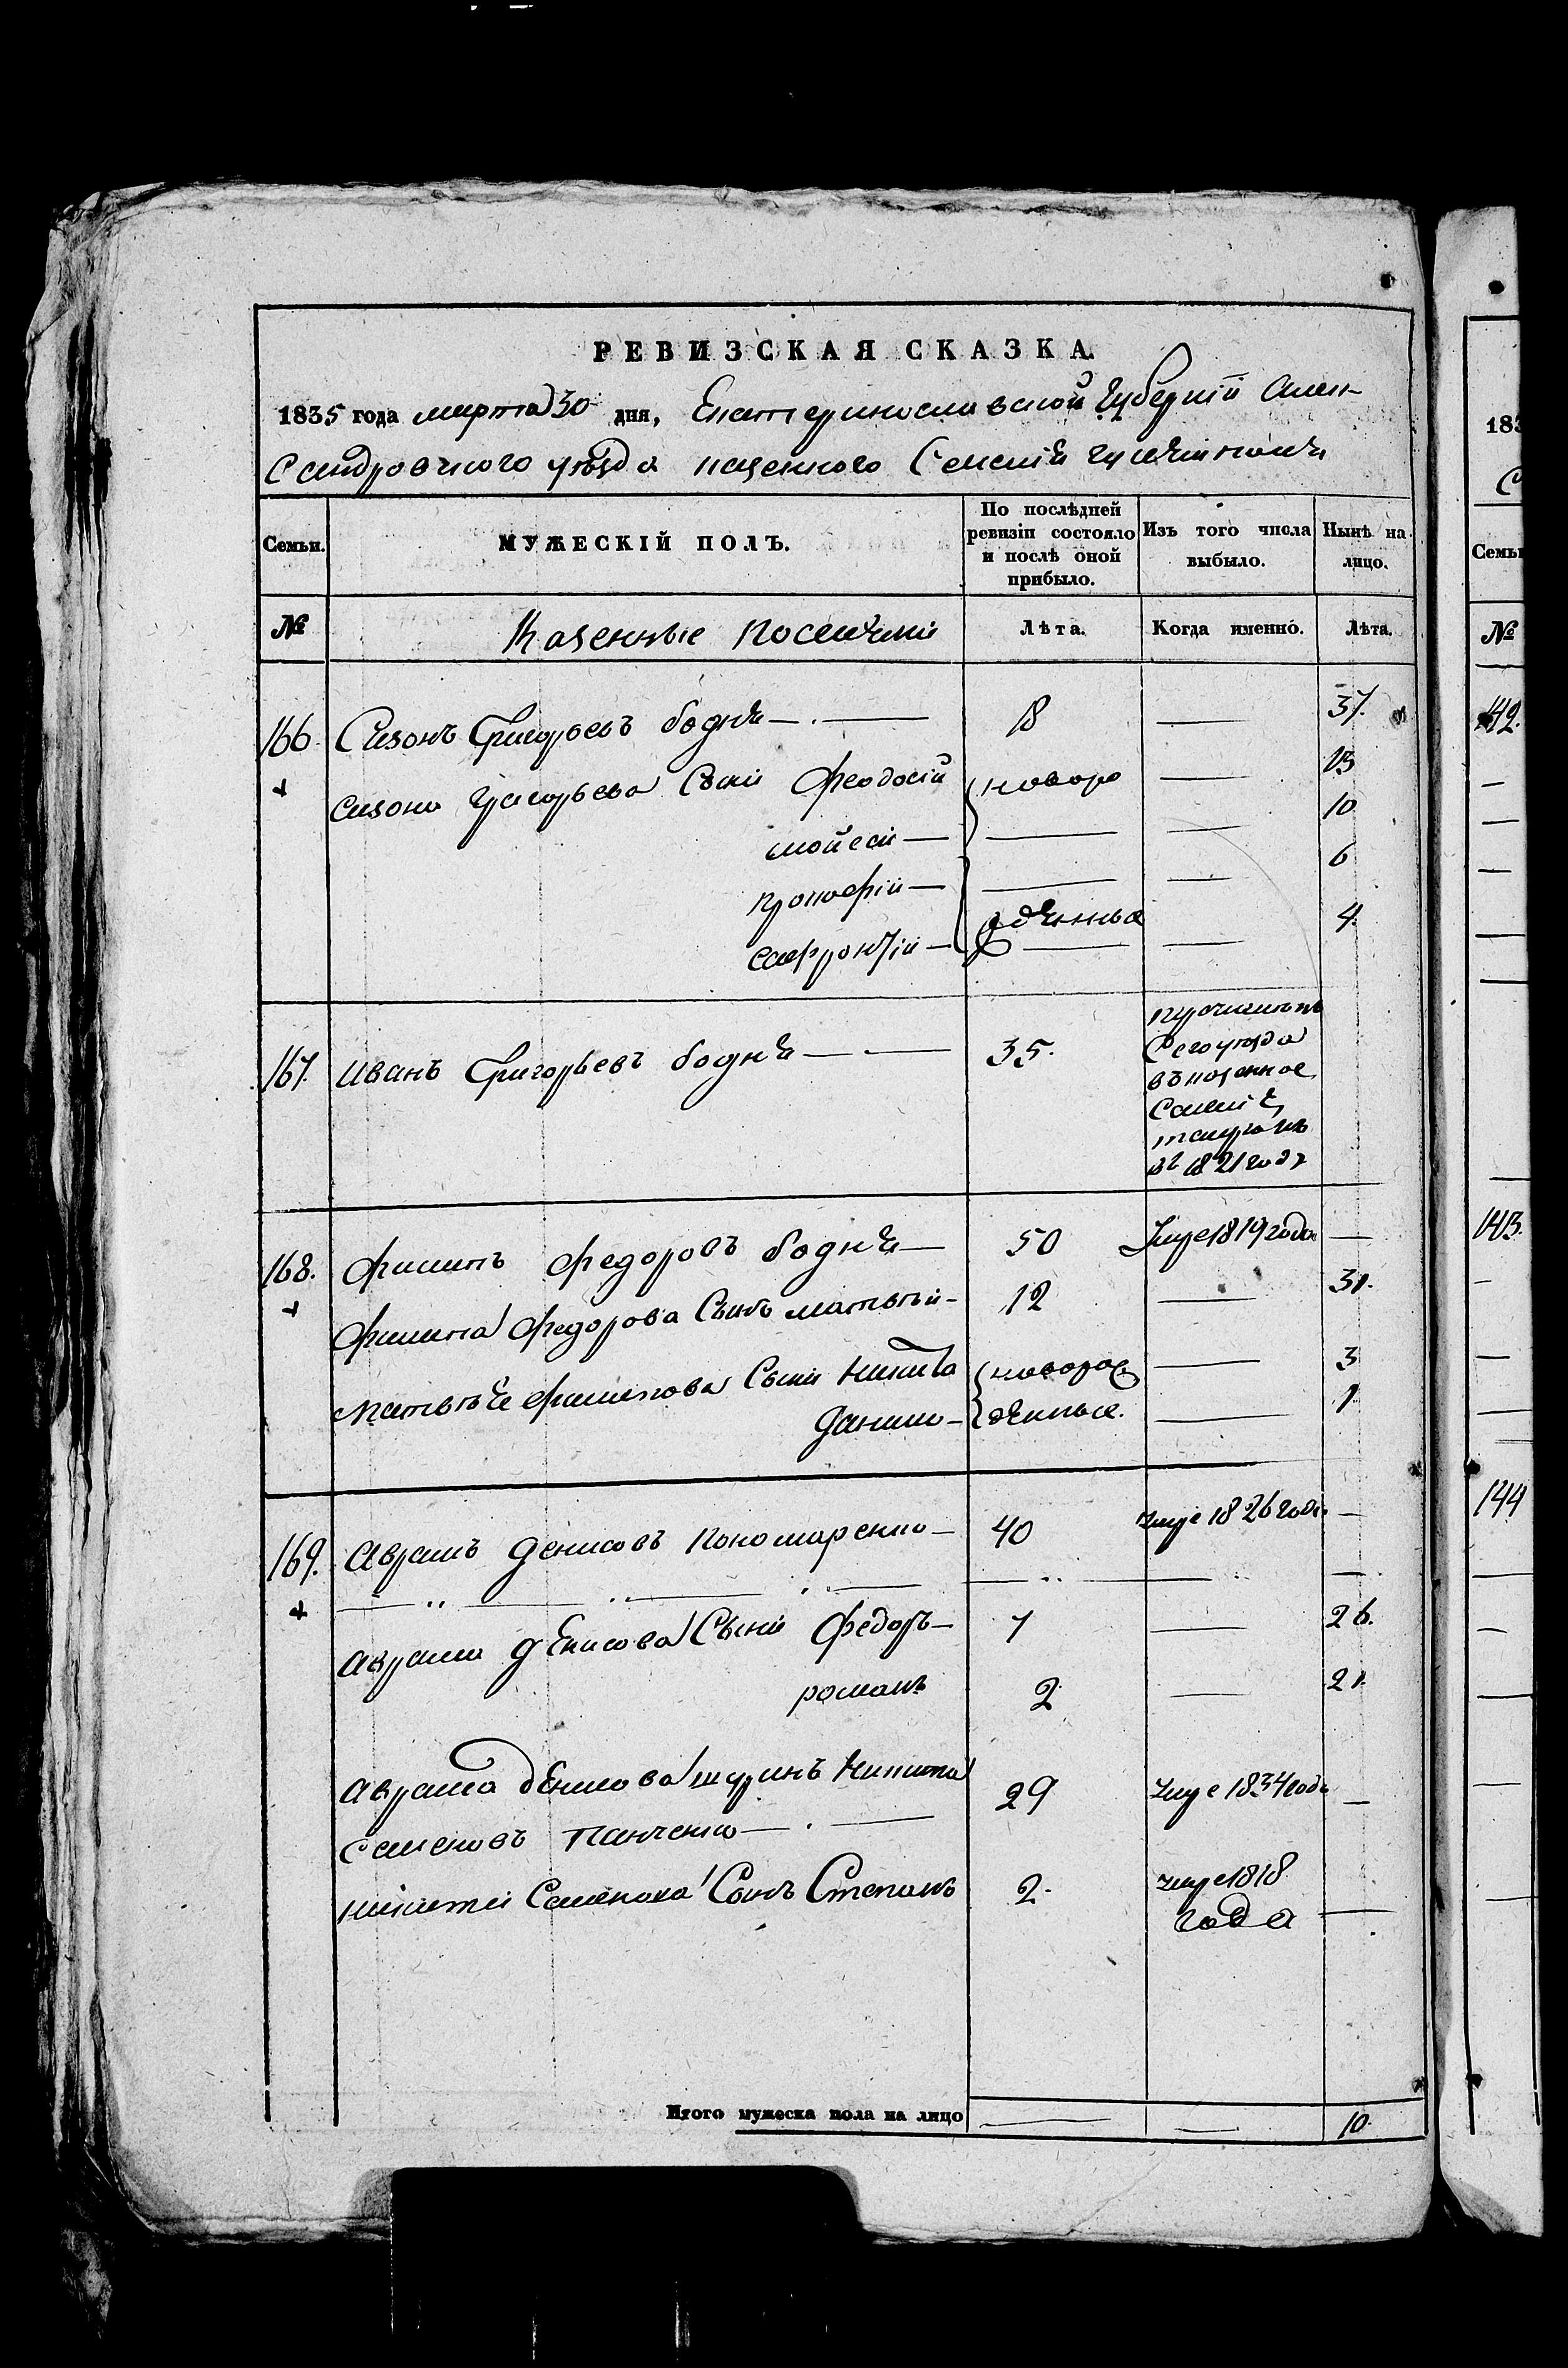 РЕВИЗСКАЯ СКАЗКА.
1835 года марта 30 дня, Екатеринославской Губерніи Алек-
сандровского уѣзда казенного Селенія
Семьи.
МУЖЕСКІЙ ПОЛЪ.
По послѣдней ревизіи состояло и послѣ оной прибыло.
Изъ того числа выбыло.
Нынѣ на лицо.
№ Казенные поселяне Лѣта. Когда именно. Лѣта.
166. Сизонъ Григорьевъ бодня 18 — 37.
Сизона Григорьева Сыни Феодосій новоро — 13
мойсей — — — 10
прокофій — — — 6
жденные
софроній — — — 4.
167. иванъ Григорьевъ бодня — — 35.
перечисленъ
Сего уѣзда
въ казенное
Селеніе
въ 1821 году
168. филипъ федоровъ бодня — 50 Умре 1819 года —
филипа федорова Сынъ матвѣй — 12 — 31.
матвѣя филипова Сыни Никита новорож — 3
данило — денные. — 1.
169. Аврамъ денисовъ пономаренко — 40 умре 1826 года —
Аврама денисова Сыни федоръ — 7 — 26.
романъ 2 — 21.
Аврама денисова шуринъ Никита 29 умре 1834 года —
Семеновъ Панченко — . —
никиты Семенова Сынъ Степанъ 2. умре 1818
года —
Итого мужеска пола на лицо — — 10.
183
С
Семьи
№
142.
143.
144